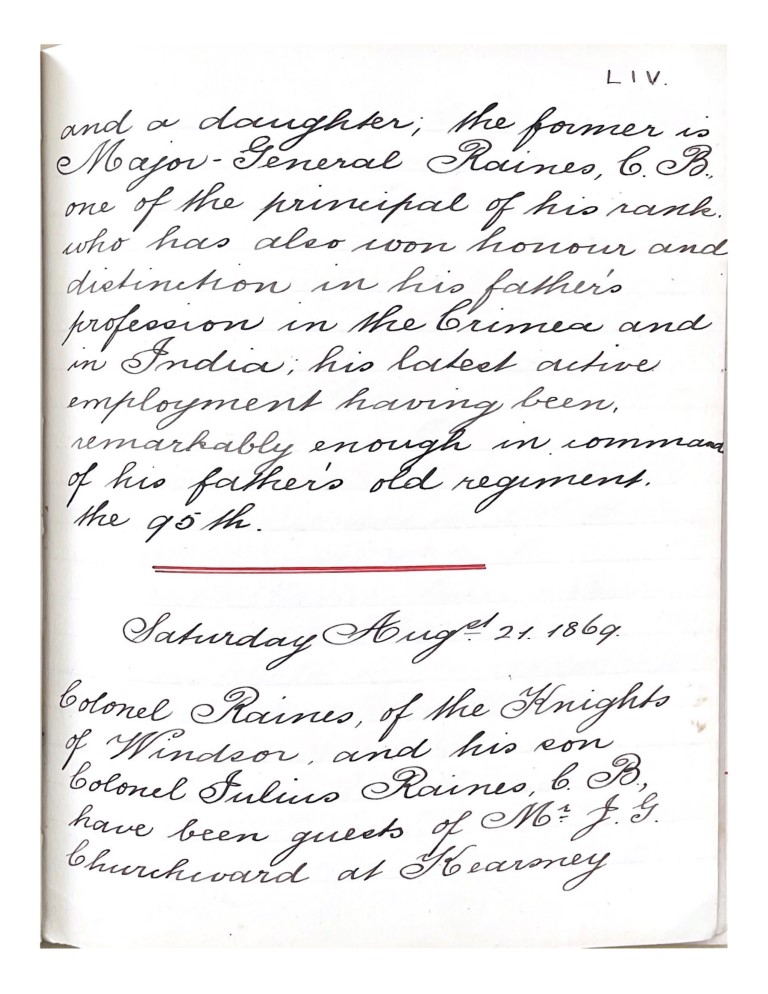 LIV.
and a daughter; the former is
Major-General Raines, C. B.,
one of the principal of his rank.
who has also won honour and
distinction in his father's
profession in the Crimea and
in India; his latest active
employment having been,
remarkably enough in command
of his father's old regiment.
the 95th.
Saturday Augst 21. 1869.
Colonel Raines, of the Knights
of Windsor, and his son
Colonel Julius Raines, C. B.,
have been guests of Mr J. G.
Churchward at Kearsney